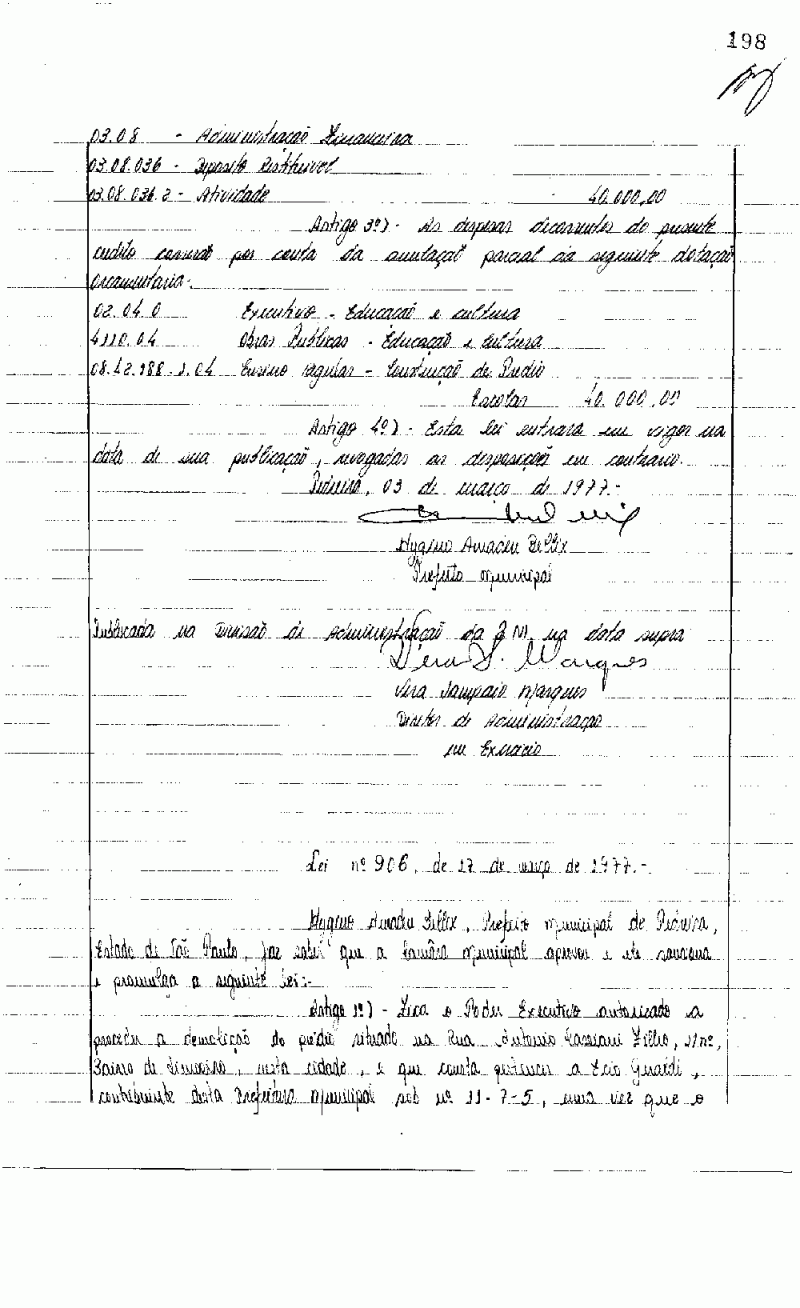 198
03.08 - Administração Financeira
03.08.036 - Deposito Restituivel
03.08.036.2 - Atividade 40.000,00
Artigo 3º) - As despesas decorrentes do presente
credito correrão por conta da anulação parcial da seguinte dotação
orçamentaria:-
02.04.0 Executivo - Educação e cultura
4.110.04 Obras Publicas - Educação e Cultura
08.42.188.1.04 Ensino regular - Construção de Predio
Escolar 40.000,00
Artigo 4º) - Esta lei entrara em vigor na
data de sua publicação, revogadas as disposições em contrario.
Pedreira, 03 de março de 1977.-
Hygino Amadeu Bellix
Prefeito Municipal
Publicada na Divisão de Administração da P.M. na data supra
Vera S. Marques
Vera Sampaio Marques
Diretor de Administração
em Exercicio
Lei nº 906, de 17 de março de 1977.-
Hygino Amadeu Bellix, Prefeito Municipal de Pedreira,
Estado de São Paulo, faz saber que a Camâra Municipal aprovou e ele sanciona
e promulga a seguinte lei:-
Artigo 1º) - Fica o Poder Executivo autorizado a
proceder a demolição do prédio situado na Rua Antonio Fillio, s/nº,
Bairro do Limoeiro, nesta cidade, e que consta pertencer a Ecio Giraldi,
contribuinte desta Prefeitura Municipal sob nº 11-7-5, uma vez que o